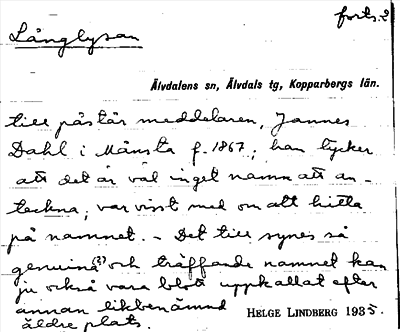 forts. 2
Långlysan
Älvdalens sn, Älvdals tg, Kopparbergs län.
till påstår meddelaren, Jannes
Dahl i Månsta f. 1867; han tycker
att det är väl inget namn att an-
teckna, var visst med om att hitta
på namnet. - Det till synes så
genuina (?) och träffande namnet kan
ju också vara blott uppkallat efter
annan likbenämnd
äldre plats.
HELGE LINDBERG 1935.